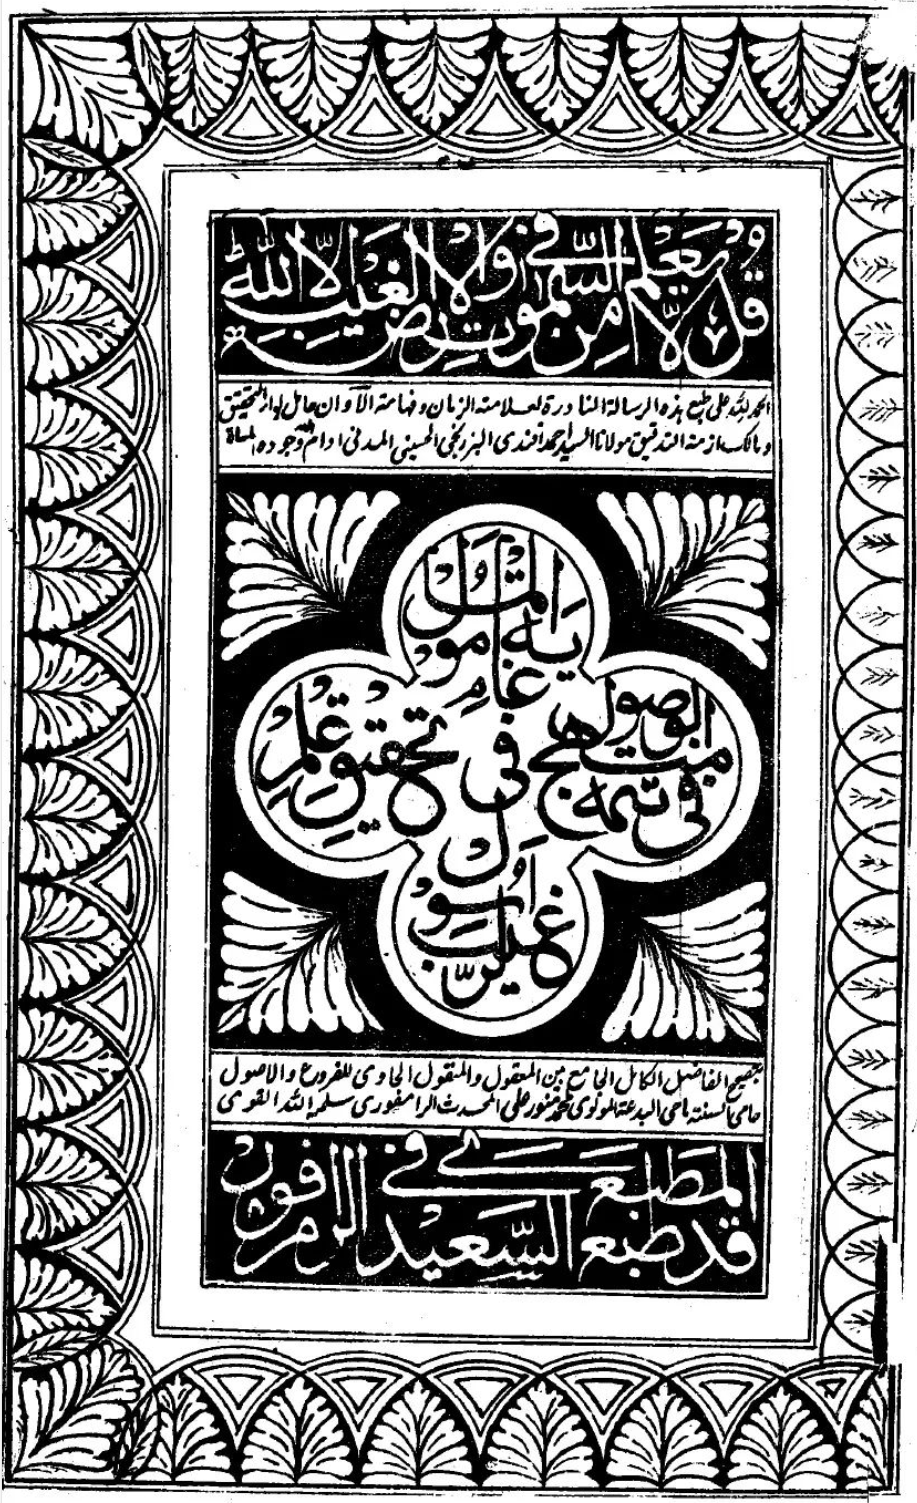 قل لا يعلم من في السموت والارض الغيب الا الله
الحمد لله على طبع هذه الرسالة النادرة لعلامة الزمان وفهامة الآوان حامل لواء التحقيق
ومالك ازمة التدقيق مولانا السيد احمد افندى البرزنجى الحسينى المدنى ادام الله وجوده المسماة
غاية المامول
في تتمة منهج الوصول
في تحقيق علم
غيب الرسول
بتصحيح الفاضل الكامل الجامع بين المعقول والمنقول الحاوى للفروع والاصول
حامى السنة ماحى البدعة المولوى محمد منور على المحدث الرامفورى سلمه الله القوى
قد طبع في المطبع السعيدى الرامفور